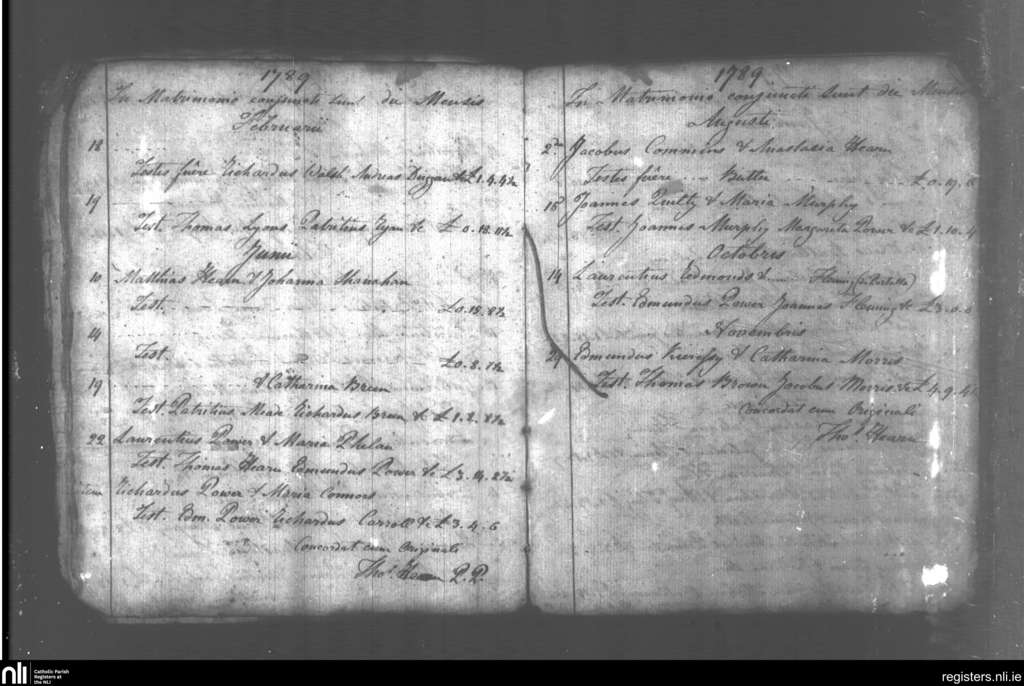 1789
In Matrimonio conjuncti sunt die Mensis
Februarii
18
Testes fûere Richardus Walsh Andreas Duggan &c £1.4.4½
19
Test. Thomas Lyons Patritius Ryan &c £0.18.11½
Junii
10 Matthias Hearn & Johanna Shanahan
Test. £0.18.8½
14
Test. £0.8.1½
19 & Catharina Breen
Test. Patritius Meade Richardus Breen &c £1.2.8½
22 Laurentius Power & Maria Phelan
Test. Thomas Hearn Edmundus Power &c £3.14.2½
Richardus Power & Maria Connors
Test. Edm. Power Richardus Carroll &c £3.4.6
Concordat cum Originali
Thos. Hearn P.P.
1789
In Matrimonio conjuncti sunt die Mensis
Augusti
2 Jacobus Commins & Anastasia Hearn
Testes fûere Butler £0.19.6
18 Joannes Quilty & Maria Murphy
Test. Joannes Murphy Margarita Power &c £1.10.4
Octobris
14 Laurentius Edmonds & Fleming
Test. Edmundus Power Joannes Fleming &c £3.0.0
Novembris
29 Edmundus & Catharina Morris
Test. Thomas Brown Jacobus Morris &c £4.9.4
Concordat cum Originali
Thos. Hearn
nli
Catholic Parish
Registers at
the NLI
registers.nli.ie